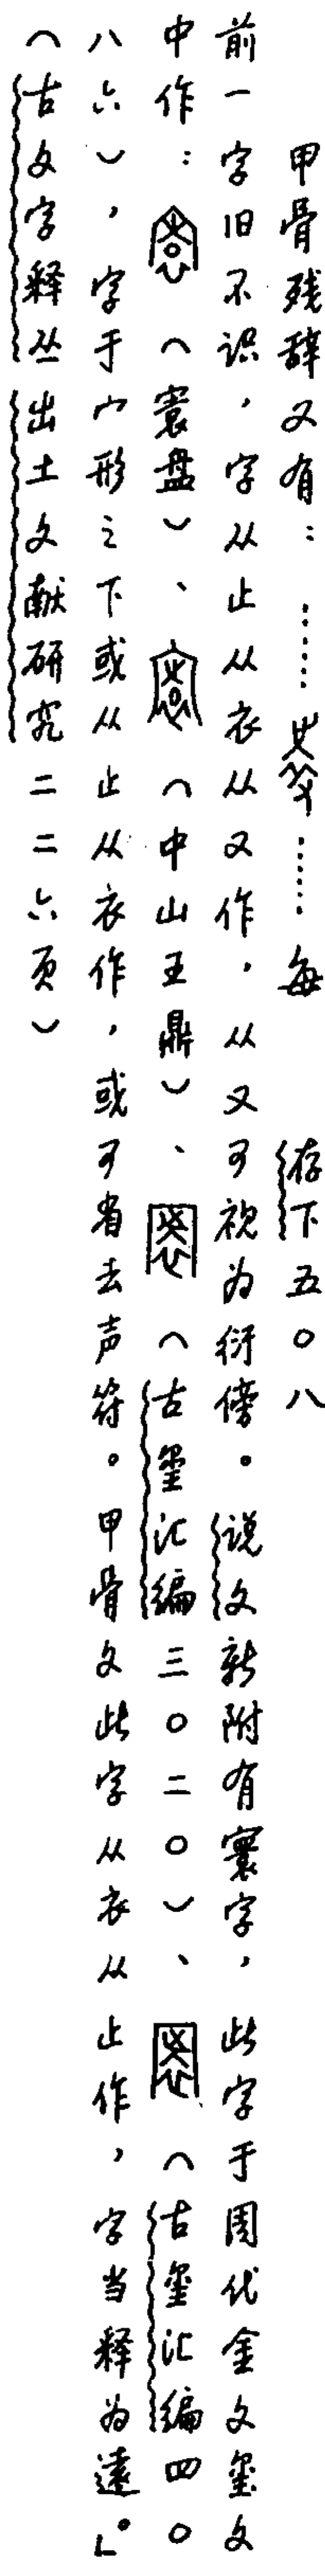 甲骨残辞又有：…………每 存下五〇八
前一字旧不识，字从止从衣从又作，从又可视为衍傍。说文新附有寰字，此字于周代金文玺文
中作：（寰盘）、（中山王鼎）、（古玺汇编三〇二〇）、（古玺汇编四〇
八六），字于宀形之下或从止从衣作，或可省去声符。甲骨文此字从衣从止作，字当释为远」。
（古文字释丛出土文献研究二二六页）